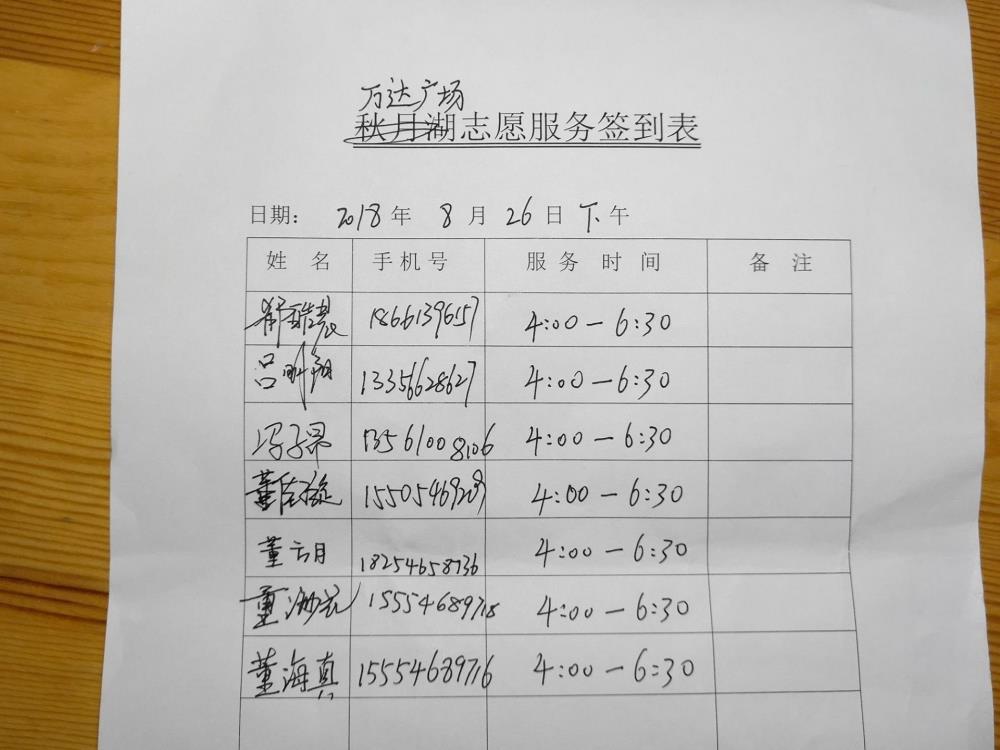 万达广场
秋月湖志愿服务签到表
日期： 2018年 8月 26日 下午
姓 名 手机号 服务时间 备 注
18661396157 4:00－6:30
吕明阳 13356628627 4:00－6:30
冯子昂 13561008106 4:00－6:30
董 15505469209 4:00－6:30
董云月 18254658736 4:00－6:30
董 15554689718 4:00－6:30
董海真 15554689716 4:00－6:30